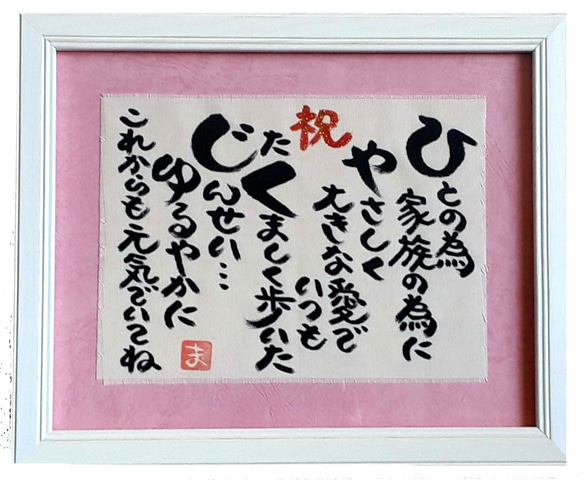 ひとの為
家族の為に
やさしく
大きな愛で
いつも
祝
たくましく歩いた
じんせい…
ゆるやかに
これからも元気でいてね
ま